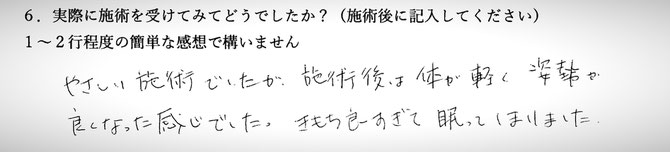 6．実際に施術を受けてみてどうでしたか？（施術後に記入してください）
1～2行程度の簡単な感想で構いません
やさしい施術でしたが、施術後は体が軽く姿勢が
良くなった感じでした。きもち良すぎて眠ってしまいました。